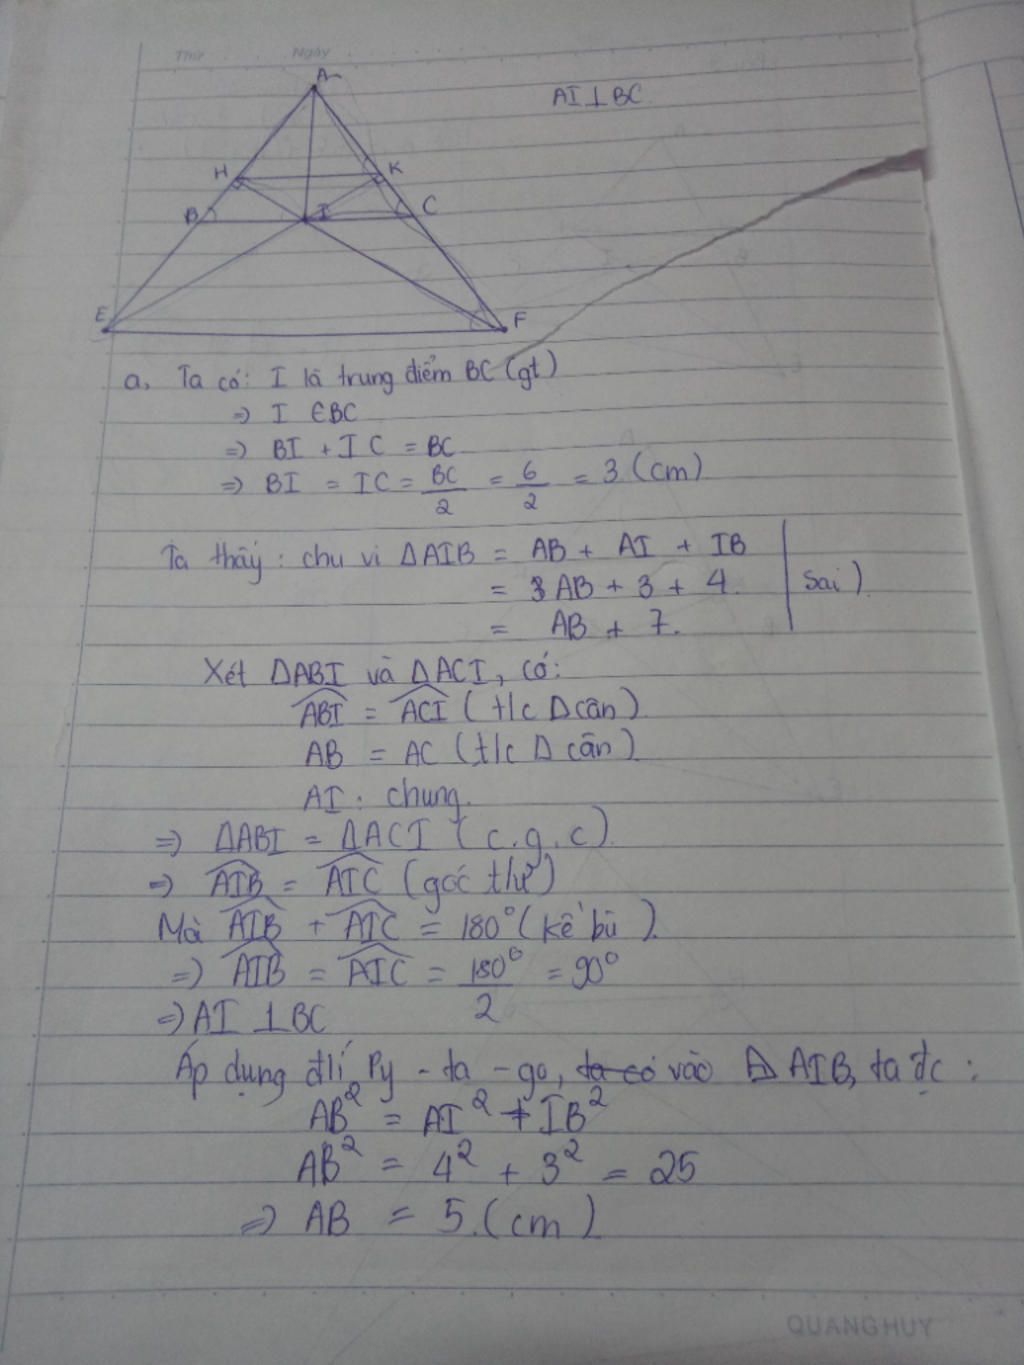 Thứ Ngày
A
AI⊥BC
H K
B I C
E F
a, Ta có: I là trung điểm BC (gt)
=> I ∈BC
=> BI + IC = BC
=> BI = IC = BC/2 = 6/2 = 3 (cm)
Ta thấy: chu vi ΔAIB = AB + AI + IB
= AB + 3 + 4. sai)
= AB + 7.
Xét ΔABI và ΔACI, có:
ABI = ACI (t/c Δ cân)
AB = AC (t/c Δ cân)
AI : chung.
=> ΔABI = ΔACI (c.g.c)
=> AIB = AIC (góc thứ)
Mà AIB + AIC = 180° (kề bù).
=> AIB = AIC = 180°/2 = 90°
=> AI ⊥BC
Áp dụng đlí Py-ta-go, ta có vào Δ AIB, ta đc:
AB² = AI² + IB²
AB² = 4² + 3² = 25
=> AB = 5.(cm)
QUANGHUY